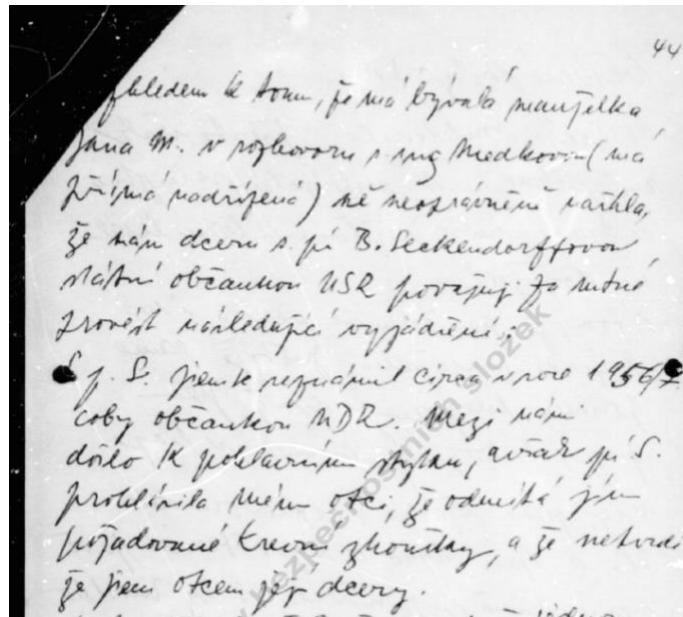 44
zhledem k tomu, že má bývalá manželka
Jana M. v rozhovoru s ing Medkovou (má
přímá nadřízená) mě neoprávněně nařkla,
že mám dceru s pí B. Seckendorffovou
státní občankou NSR považuji za nutné
provést následující vyjádření:
S p. S. jsem se seznámil circa v roce 1956/7
coby občankou NDR. Mezi námi
došlo k pohlavnímu styku, avšak pí S.
prohlásila mému otci, že odmítá jím
požadované krevní zkoušky, a že netvrdí
že jsem otcem její dcery.
bezpečnostních složek